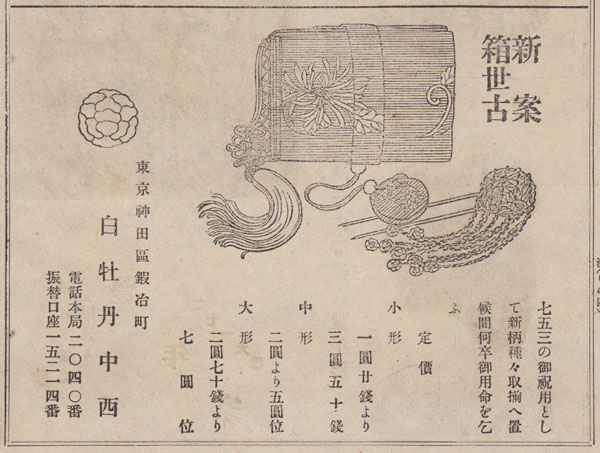 新案
箱世古
七五三の御祝用とし
て新柄種々取揃へ置
候間何卒御用命を乞
ふ
定價
小形
一圓廿錢より
三圓五十錢
中形
二圓より五圓位
大形
二圓七十錢より
七圓位
東京神田區鍜冶町
白牡丹中西
電話本局二〇四〇番
振替口座一五二一四番